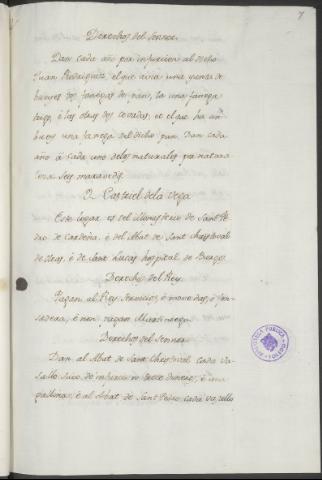 7
Derechos del Sennor.
Dan cada año por infurcion al dicho
Juan Rodriguez, el que avia una yunta de
bueyes dos fanegas de pan, la una fanega
trigo, è las otras dos cevadas, et el que ha un
buey una fanega del dicho pan. Dan cada
año à cada uno delos naturales por natura
leza seis maravedis.
Castriel dela Vega
Este logar es del Monesterio de Sant Pe
dro de Cardeña, è del Abat de Sant Christoval
de Ybeas, è de Sant Lucas hospital de Burgos.
Derechos del Rey.
Pagan al Rey Servicios, è monedas, è fon
sadera, è non pagan Martiniega.
Derechos del Sennor.
Dan al Abat de Sant Christoval cada va
sallo suyo de infurcion trece dineros, è una
gallina, è al Abat de Sant Pedro cada vasallo
BIBLIOTECA PUBLICA